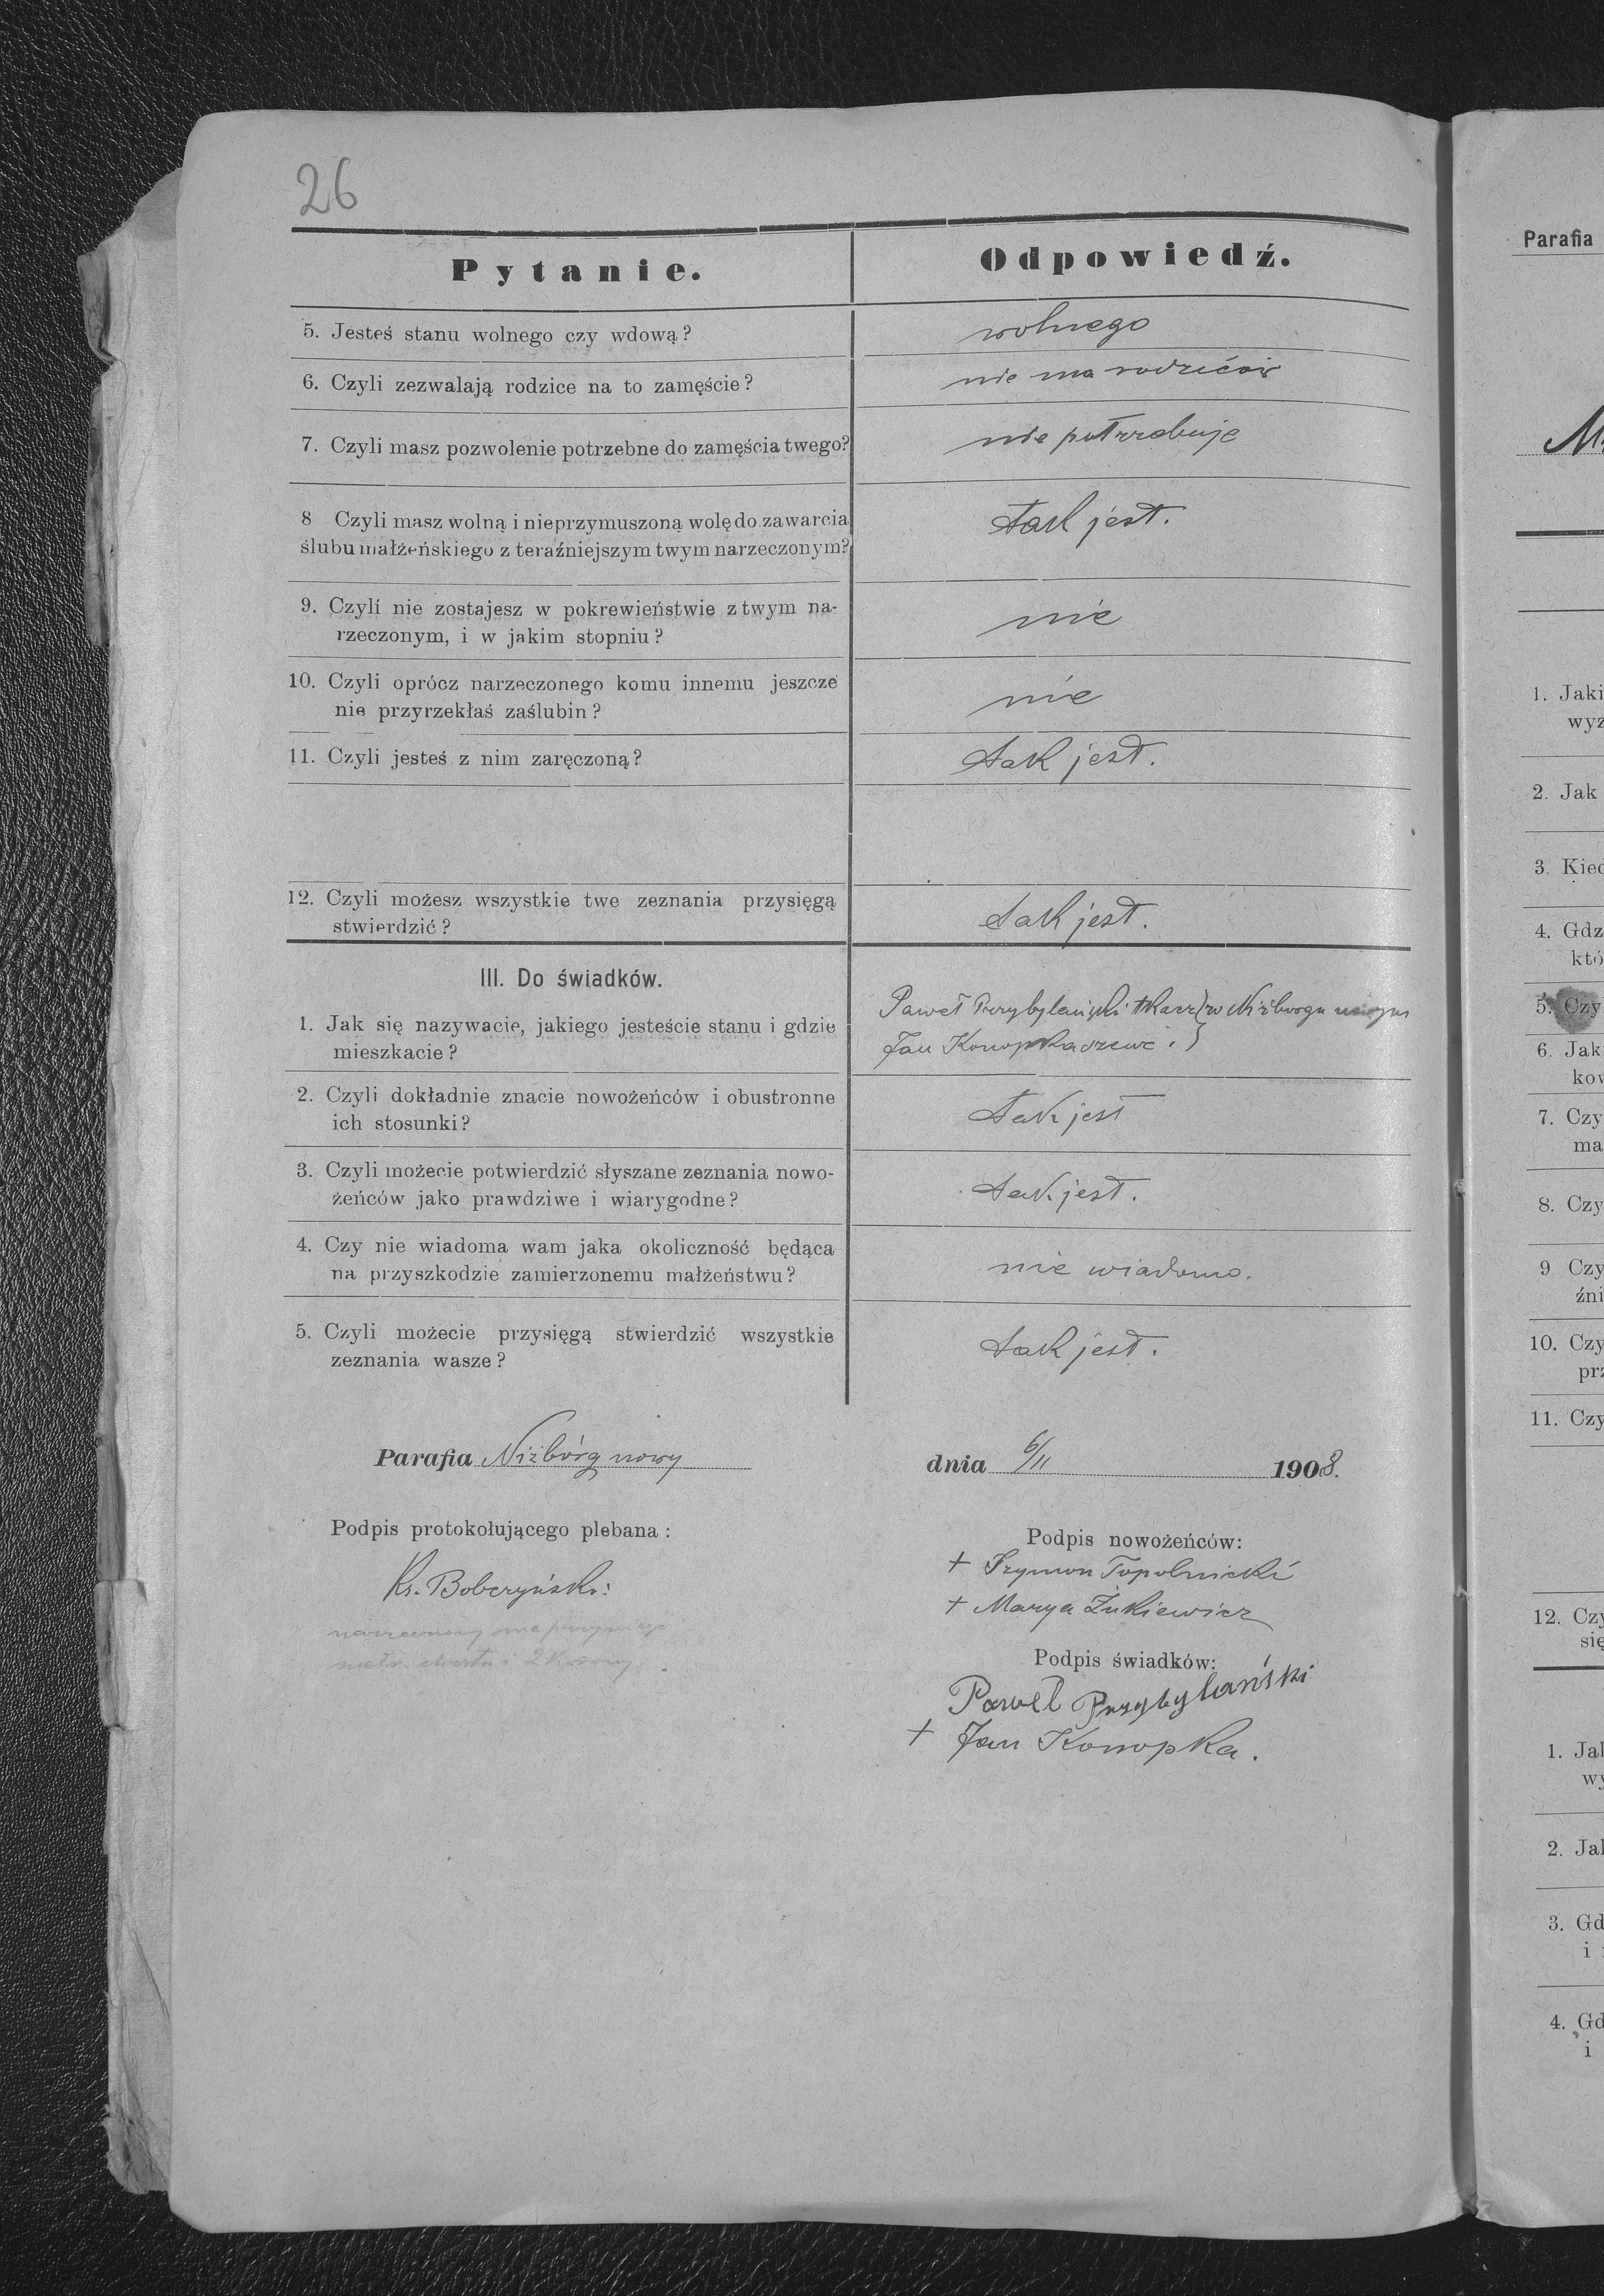 26
Pytanie.
Odpowiedź.
5. Jesteś stanu wolnego czy wdową?
wolnego
6. Czyli zezwalają rodzice na to zamęście?
nie ma rodziców
7. Czyli masz pozwolenie potrzebne do zamęścia twego?
nie potrzebuje
8 Czyli masz wolną i nieprzymuszoną wolę do zawarcia
ślubu małżeńskiego z teraźniejszym twym narzeczonym?
tak jest.
9. Czyli nie zostajesz w pokrewieństwie z twym na-
rzeczonym, i w jakim stopniu?
nie
10. Czyli oprócz narzeczonego komu innemu jeszcze
nie przyrzekłaś zaślubin?
nie
11. Czyli jesteś z nim zaręczoną?
tak jest.
12. Czyli możesz wszystkie twe zeznania przysięgą
stwierdzić?
tak jest.
III. Do świadków.
1. Jak się nazywacie, jakiego jesteście stanu i gdzie
mieszkacie?
Paweł Przybylański tkacz } w Niżborgu nowym
Jan Konopka szewc. }
2. Czyli dokładnie znacie nowożeńców i obustronne
ich stosunki?
tak jest
3. Czyli możecie potwierdzić słyszane zeznania nowo-
żeńców jako prawdziwe i wiarygodne?
tak jest.
4. Czy nie wiadoma wam jaka okoliczność będąca
na przyszkodzie zamierzonemu małżeństwu?
nie wiadomo.
5. Czyli możecie przysięgą stwierdzić wszystkie
zeznania wasze?
tak jest.
Parafia Niżbórg nowy
dnia 6/11 1908.
Podpis protokołującego plebana:
Ks. Bobczyński
narzeczony ma
metr. chrztu i 2 Korony.
Podpis nowożeńców:
+ Szymon Topolnicki
+ Marya Żukiewicz
Podpis świadków:
Paweł Przybylański
+ Jan Konopka.
Parafia
1. Jaki
wyz
2. Jak
3. Kied
4. Gdz
któ
5. Czy
6. Jak
kow
7. Czy
ma
8. Czy
9 Czy
źni
10. Czy
prz
11. Czy
12. Czy
się
1. Jak
wy
2. Jak
3. Gd
i
4. Gd
i